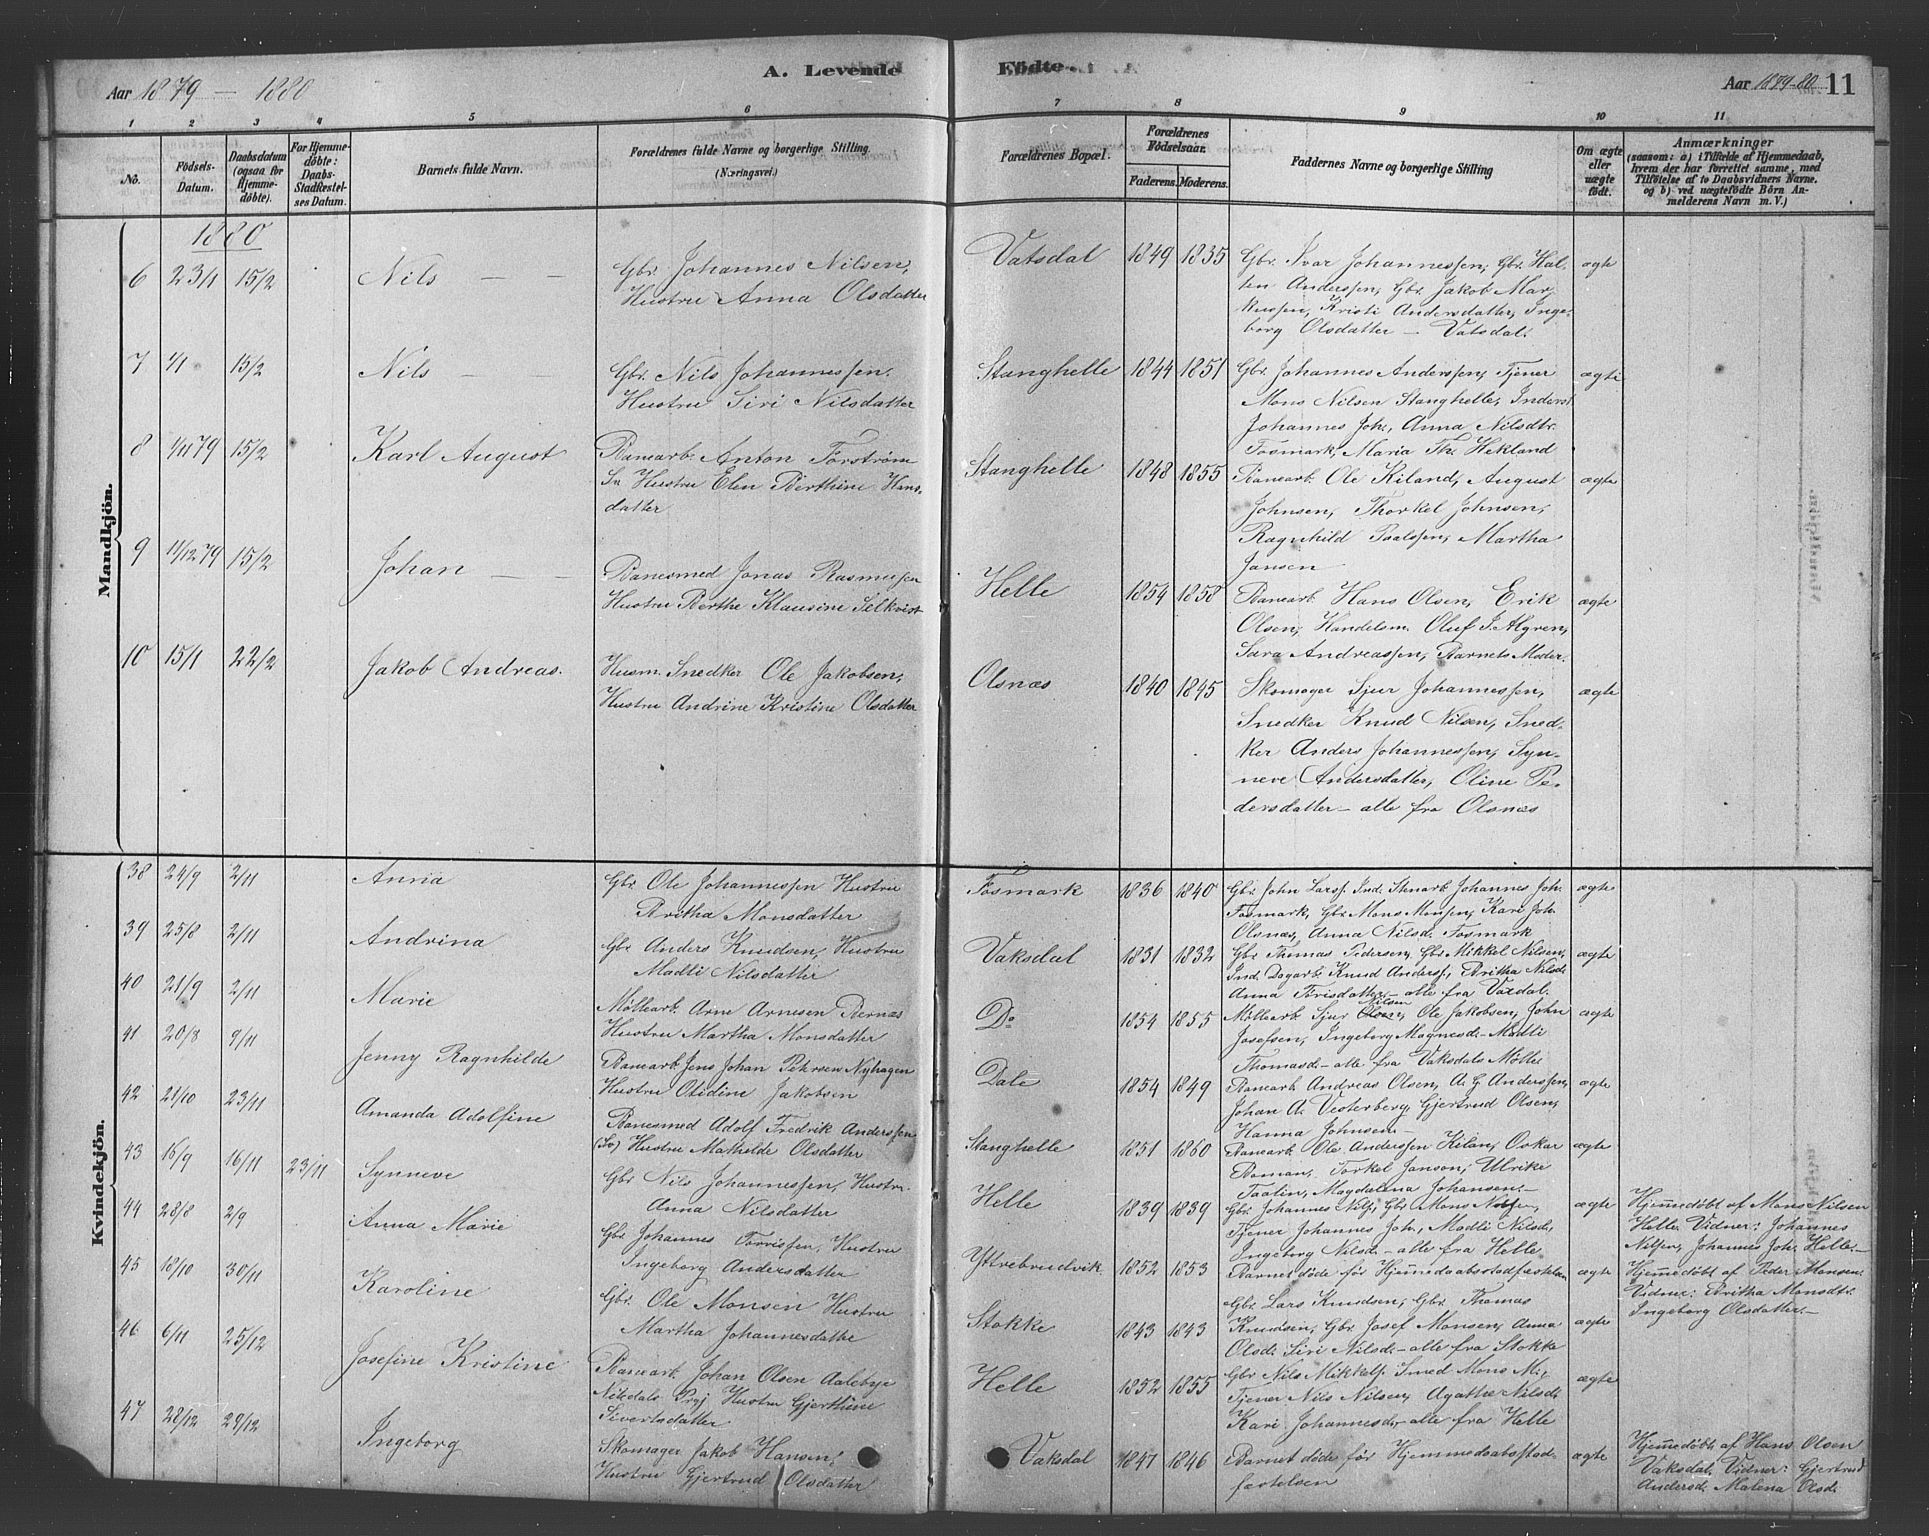 Aar 1879 - 1880
A. Levende Födte.
Aar 1879-80 11
1 2 3 4 5 6 7 8 9 10 11
No.
Födsels-Datum.
Daabsdatum (ogsaa for Hjemme-döbte).
For Hjemme-döbte: Daabs-Stadfæstel-ses Datum.
Barnets fulde Navn.
Forældrenes fulde Navne og borgerlige Stilling. (Næringsvei.)
Forældrenes Bopæl.
Forældrenes Födselsaar.
Faderens. Moderens.
Faddernes Navne og borgerlige Stilling
Om ægte eller uægte födt.
Anmærkninger
(saasom: a) i Tilfælde af Hjemmedaab, hvem der har forrettet samme, med Tilföielse af to Daabsvidners Navne. og b) ved uægtefödte Börn An-melderens Navn m. V.)
Mandkjön.
1880
6 23/1 15/2 Nils — — Gbr. Johannes Nilsen, Vatsdal 1849 1835 Gbr. Ivar Johannessen, Gbr. Hal- ægte
Hustru Anna Olsdatter
ten Anderssen, Gbr. Jakob Mar
kussen, Kristi Andersdatter, Inge-
borg Olsdatter — Vatsdal.
7 1/1 15/2 Nils — — Gbr. Nils Johannessen. Stanghelle 1844 1851 Gbr. Johannes Anderssen, Tjener ægte
Hustru Siri Nilsdatter
Mons Nilsen Stanghelle, Inderst
Johannes Joh., Anna Nilsdtr.
Fosmark, Maria Th. Hekland
8 1/11 79 15/2 Karl August Banearb. Anton Forström Stanghelle 1848 1855 Banearb. Ole Kiland, August ægte
Sv Hustru Elen Berthine Hans-
datter
Johnsen, Thorkel Johnsen,
Ragnhild Paalssen, Martha
Jansen
9 11/12 79 15/2 Johan — — Banesmed Jonas Rasmussen Helle 1854 1858 Banearb. Hans Olsen, Erik ægte
Hustru Berthe Klausine Selkvist
Olsen, Handelsm. Oluf J. Algren,
Sara Andreassen, Barnets Moder.
10 15/1 22/2 Jakob Andreas. Husm. Snedker Ole Jakobsen, Olsnæs 1840 1845 Skomager Sjur Johannessen, ægte
Hustru Andrine Kristine Olsdatter
Snedker Knud Nilsen, Sned-
ker Anders Johannessen, Syn-
neve Andersdatter, Oline Pe-
dersdatter — alle fra Olsnæs
Kvindekjön.
38 24/9 2/11 Anna Gbr. Ole Johannessen Hustru Fosmark 1836 1840 Gbr. John Larss. Ind. Johannes Joh. ægte
Britha Monsdatter
Fosmark, Gbr. Mons Monsen, Kari Joh.
Olsnæs, Anna Nilsd. Fosmark
39 25/8 2/11 Andrina Gbr. Anders Knudsen, Hustru Vaksdal 1831 1832 Gbr. Thomas Pedersen, Gbr. Mikkel Nilsen, ægte
Madli Nilsdatter
Ind. Dagarb. Knud Anderss., Britha Nilsd.
Anna Torisdatter — alle fra Vaxdal.
40 21/9 2/11 Marie Møllearb. Arne Arnesen Bernæs Do 1854 1855 Møllearb. Sjur Nilsen, Ole Jakobsen, John ægte
Hustru Martha Monsdatter
Josefsen, Ingeborg Magnesd. Madli
Thomasd. — alle fra Vaksdals Mølle
41 20/8 9/11 Jenny Ragnhilde Banearb. Jens Johan Petersen Nyhagen Dale 1854 1849 Banearb. Andreas Olsen, A. G. Anderssen, ægte
Hustru Otidine Jakobsen
Johan A. Vesterberg, Gjertrud Olsen,
Hanna Johnsen —
42 21/10 23/11 Amanda Adolfine Banesmed Adolf Fredrik Anderssen Stanghelle 1851 1860 Banearb. Ole Anderssen Kilan, Oskar ægte
(Sv) Hustru Mathilde Olsdatter
Boman, Torkel Janson, Ulrike
Taalin, Magdalena Johansen. —
43 16/9 16/11 23/11 Synneve Gbr. Nils Johannessen, Hustru Helle 1839 1839 Gbr. Johannes Nils., Gbr. Mons Nilsen, ægte
Anna Nilsdatter
Tjener Johannes Joh., Madli Nilsd.
Ingeborg Nilsd. — alle fra Helle
Hjemmedøbt af Mons Nilsen
Helle, Vidner: Johannes
Nilsen, Johannes Joh. Helle. —
44 28/8 2/9 Anna Marie Gbr. Johannes Torrissen, Hustru Yttrebrudvik 1852 1853 Barnet døde før Hjemmedaabsstadfæstelsen ægte
Ingeborg Andersdatter
Hjemmedøbt af Peder Monsen.
Vidner: Britha Monsdtr.
Ingeborg Olsdatter. —
45 18/10 30/11 Karoline Gbr. Ole Monsen Hustru Stokke 1843 1843 Gbr. Lars Knudsen, Gbr. Thomas ægte
Martha Johannesdatter
Knudsen, Gbr. Josef Monsen, Anna
Olsd. Siri Nilsd. — alle fra Stokke
46 6/11 25/12 Josefine Kristine Banearb. Johan Olsen Aalebye Helle 1852 1855 Gbr. Nils Mikkels. Smed Mons M., ægte
Nitedals Prgj. Hustru Gjerthine
Sivertsdatter
Tjener Nils Nilsen, Agathe Nilsd.
Kari Johannesd. — alle fra Helle
47 28/12 29/12 Ingeborg Skomager Jakob Hansen, Vaksdal 1847 1846 Barnet døde før Hjemmedaabsstad- ægte
Hustru Gjertrud Olsdatter
fæstelsen
Hjemmedøbt af Hans Olsen
Vaksdal, Vidner: Gjertrud
Andersd. Malena Olsd.